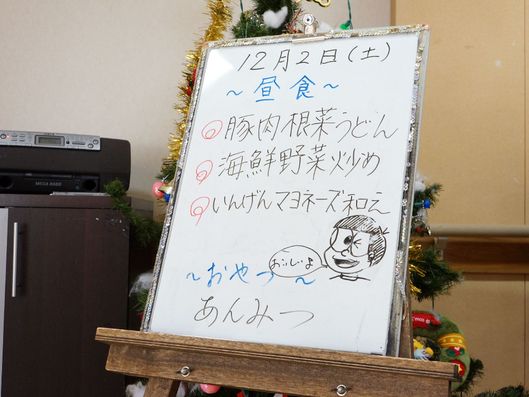 12月2日(土)
～昼食～
豚肉根菜うどん
海鮮野菜炒め
いんげんマヨネーズ和え
おいしいよ
～おやつ～
あんみつ
MEGA BASS